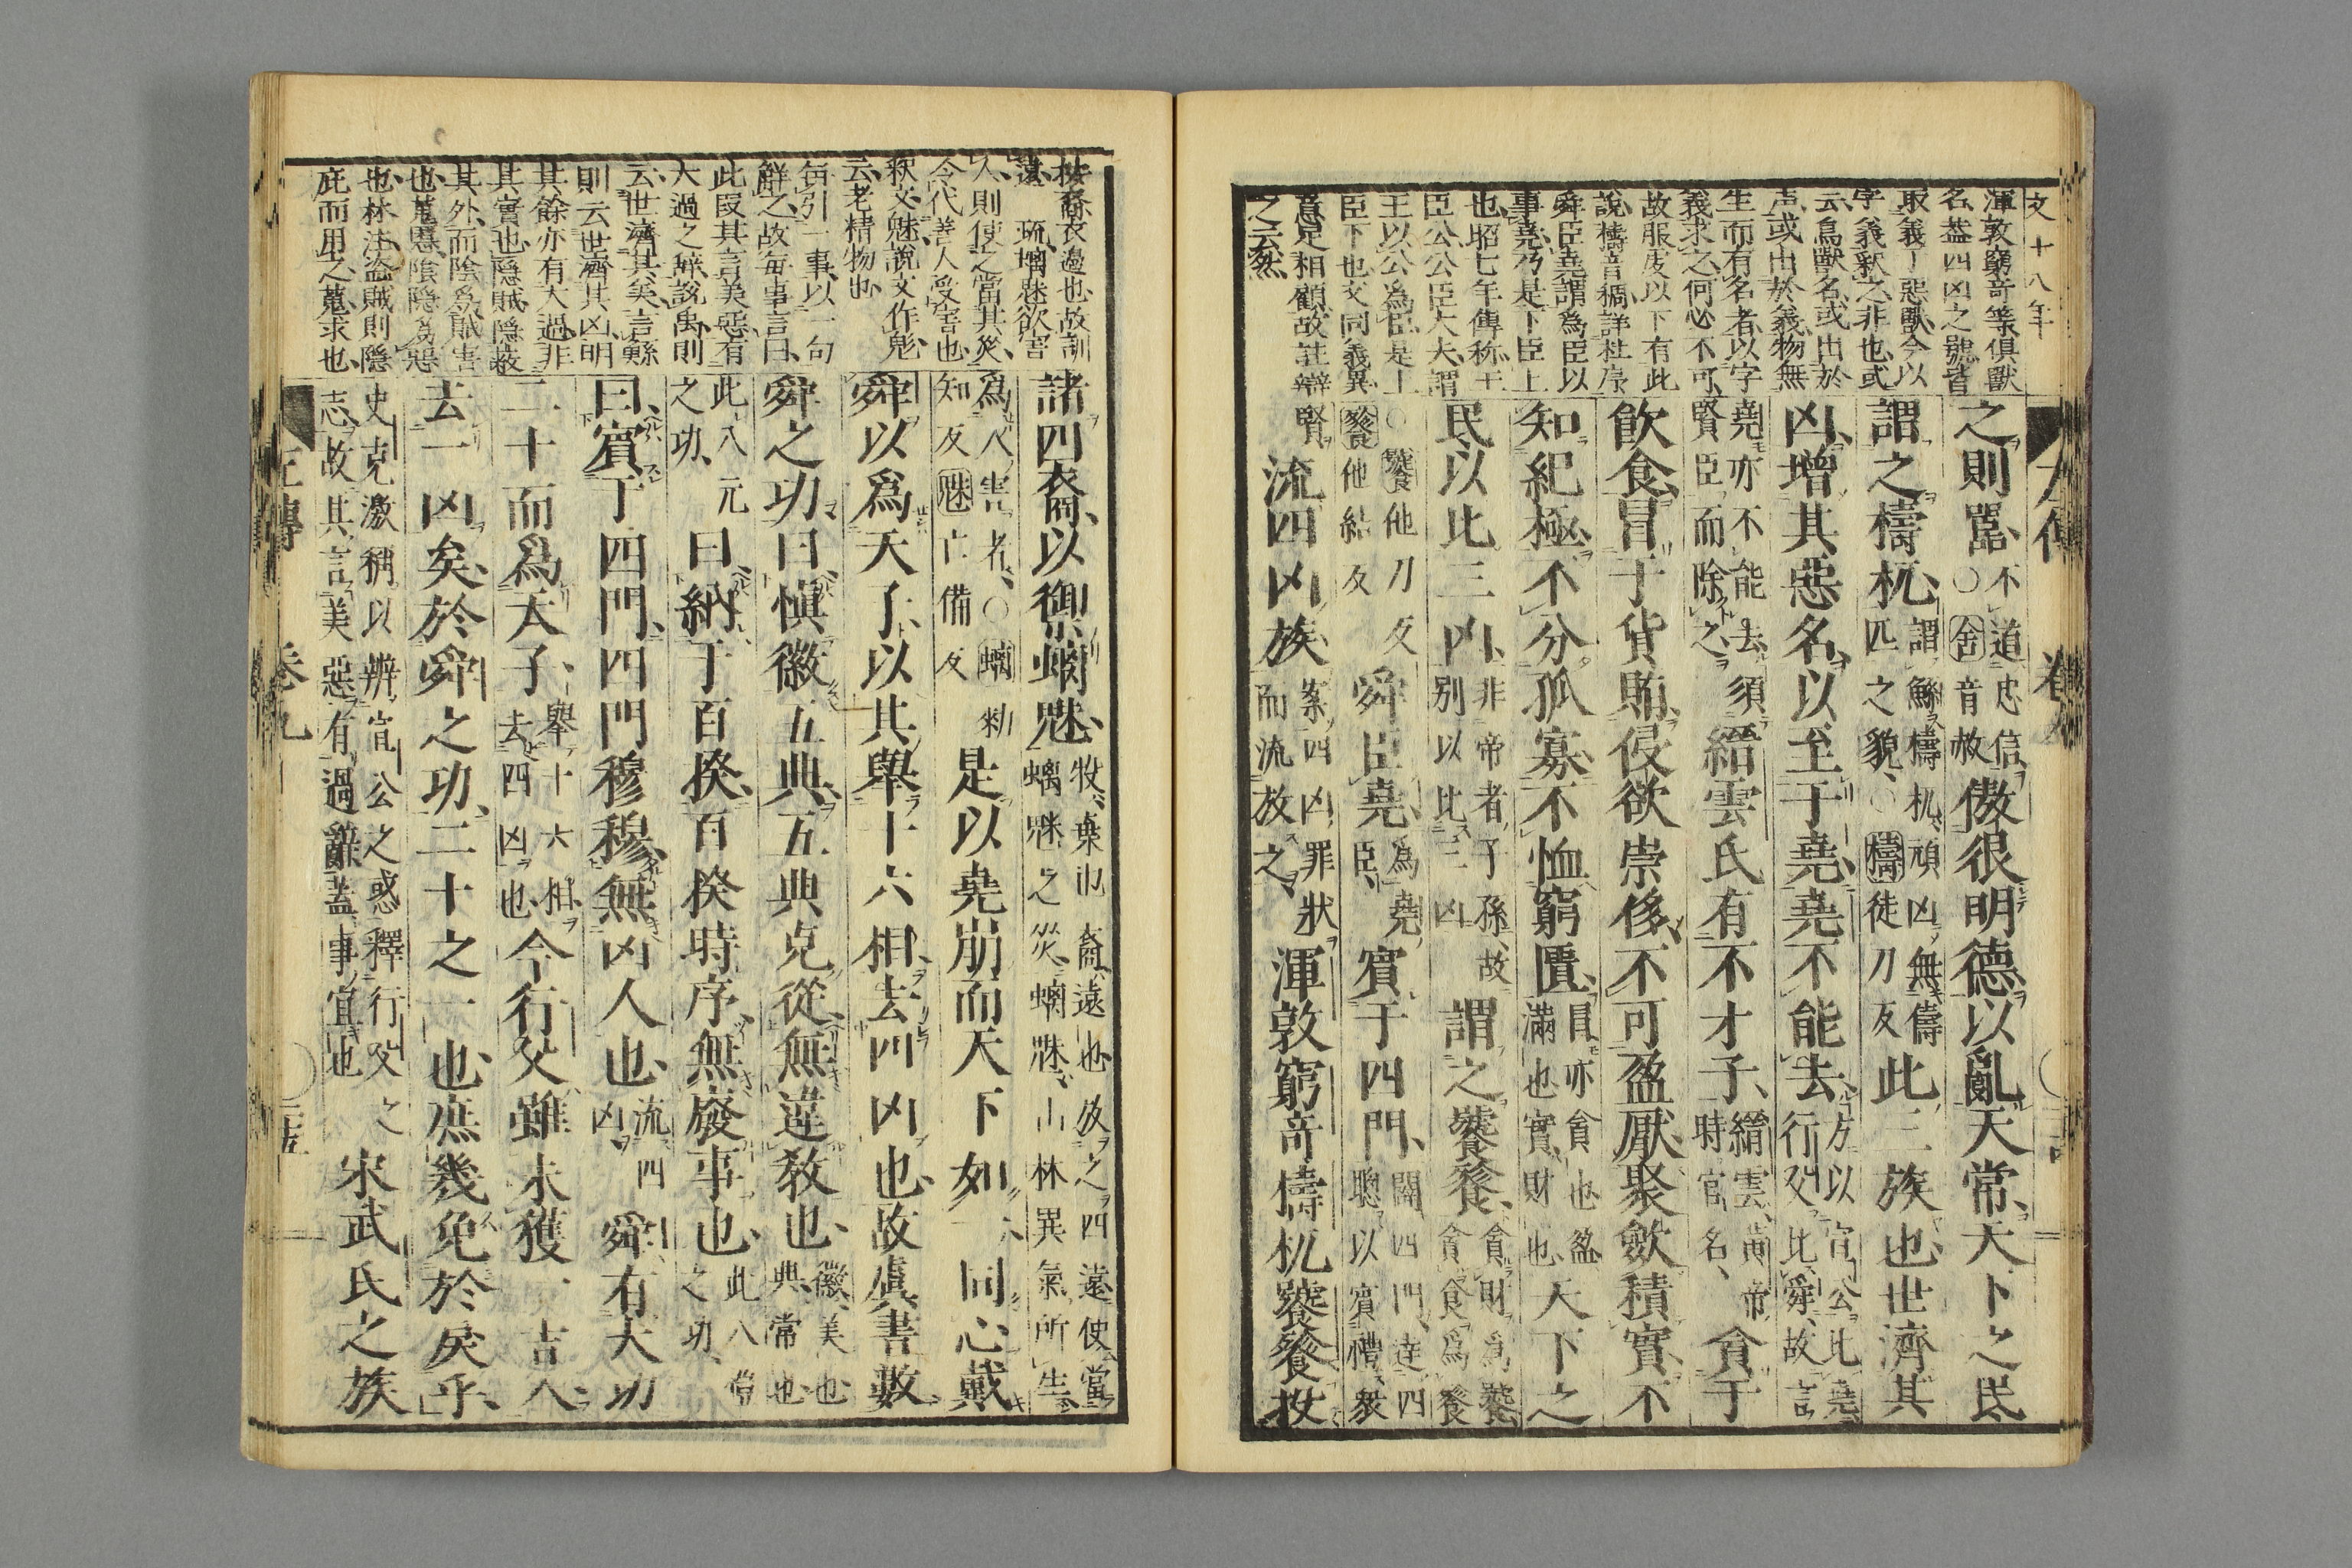 文十八年
渾敦窮奇等俱獸
名蓋四凶之號皆
取義于惡獸今以
字義釈之非也或
云鳥獸名或出於
声或出於義物無
生而有名者以字
義求之何必不可
故服虔以下有此
說檮音稠詳杜序
舜臣堯謂為臣以
事堯乃是下臣上
也昭七年傳称王
臣公公臣大夫謂
王以公為臣是上
臣下也文同義異
意是相顧故註辯
之云然
之則嚚不道忠信○舍音赦傲很明德以亂天常天下之民
謂之檮杌謂鯀檮杌頑凶無儔匹之貌○檮徒刀反此三族也世濟其
凶增其惡名以至于堯堯不能去方以宣公比堯行父比舜故言
堯亦不能去須賢臣而除之縉雲氏有不才子縉雲黃帝時官名貪于
飲食冒于貨賄侵欲崇侈不可盈厭聚斂積實不
知紀極不分孤寡不恤窮匱冒亦貪也盈滿也實財也天下之
民以比三凶非帝者子孫故別以比三凶謂之饕餮貪財為饕貪食為餮
○饕他刀反餮他結反舜臣堯為堯臣賓于四門闢四門達四聰以賓禮衆
賢流四凶族案四凶罪狀而流放之渾敦窮奇檮杌饕餮投
按裔衣邊也故訓
遠 琉螭魅欲害
人則使之當其災
令代善人受害也
釈文魅說文作鬽
云老精物也
每引一事以一句
解之故每事言曰
此段其言美惡有
大過之辞說禹則
云世濟其美言鯀
則云世濟其凶明
其餘亦有大過非
其實也隱賊隱蔽
其外而陰為賊害
也蒐慝陰隱為惡
也林注盜賊則隱
庇而用之蒐求也
諸四裔以禦螭魅投棄也裔遠也放之四遠使當螭魅之災螭魅山林異氣所生
為人害者○螭勑知反魅亡備反是以堯崩而天下如一同心戴
舜以為天子以其舉十六相去四凶也故虞書數
舜之功曰慎徽五典五典克從無違教也徽美也典常也
此八元之功曰納于百揆百揆時序無廢事也此八愷之功
曰賓于四門四門穆穆無凶人也流四凶舜有大功
二十而為天子舉十六相去四凶也今行父雖未獲一吉人
去一凶矣於舜之功二十之一也庶幾免於戾乎
史克激稱以辨宣公之惑釋行父之志故其言美惡有過辭蓋事宜也宋武氏之族
左傳 卷九 二十五